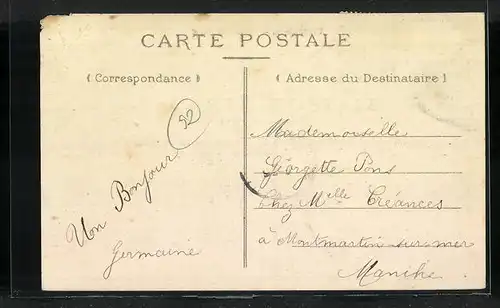 CARTE POSTALE
( Correspondance )
( Adresse du Destinataire )
92
Un Bonjour
Germaine
Mademoiselle
Georgette Pons
Chez Mlle Créances
à Montmartin sur mer
Manche